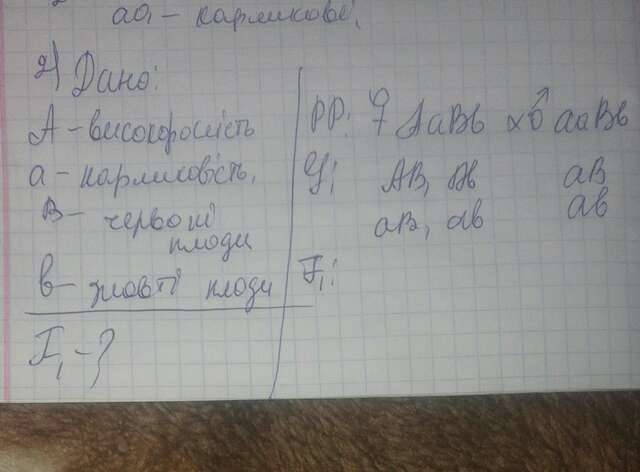 аа – карликові.
2) Дано:
А – високорослість
а – карликовість.
В – червоні
плоди
в – жовті плоди
F₁ – ?
РР: ♀ АаВв х ♂ ааВв
G: АВ, Ав аВ
аВ, ав ав
F₁: